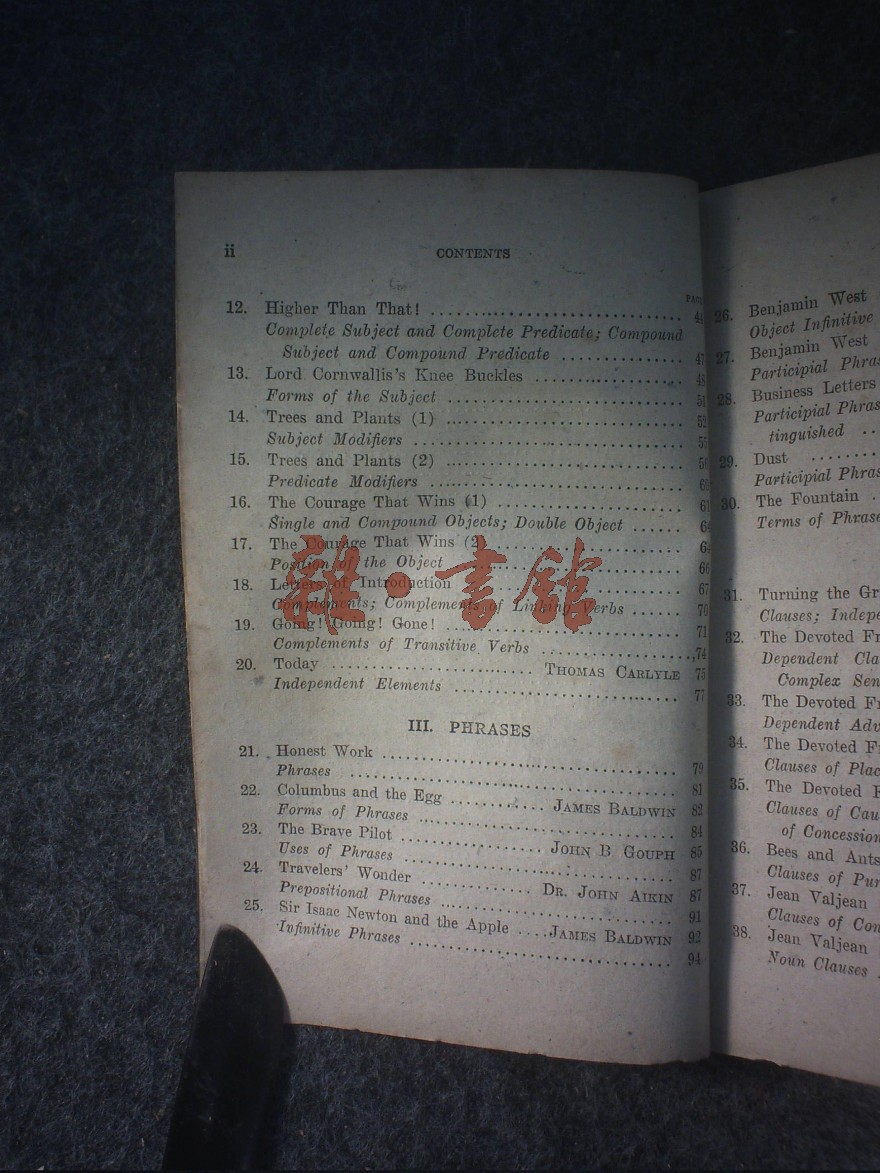 ii
CONTENTS
PAGE
12. Higher Than That! ........ 44
Complete Subject and Complete Predicate; Compound
Subject and Compound Predicate ........ 47
13. Lord Cornwallis's Knee Buckles ........ 48
Forms of the Subject ........ 51
14. Trees and Plants (1) ........ 52
Subject Modifiers ........ 55
15. Trees and Plants (2) ........ 56
Predicate Modifiers ........ 60
16. The Courage That Wins (1) ........ 61
Single and Compound Objects; Double Object ......
17. The Courage That Wins (2) ........
Position of the Object ........ 66
18. Letters of Introduction ........ 67
Complements; Complements of Linking Verbs ...... 70
19. Going! Going! Gone! ........ 71
Complements of Transitive Verbs ........ 74
20. Today ........ THOMAS CARLYLE 75
Independent Elements ........ 77
III. PHRASES
21. Honest Work ........ 79
Phrases ........ 81
22. Columbus and the Egg ........ JAMES BALDWIN 82
Forms of Phrases ........ 84
23. The Brave Pilot ........ JOHN B GOUPH 85
Uses of Phrases ........ 87
24. Travelers' Wonder ........ DR. JOHN AIKIN 87
Prepositional Phrases ........ 91
25. Sir Isaac Newton and the Apple ....JAMES BALDWIN 92
Infinitive Phrases ........ 94
26. Benjamin West
Object Infinitive
27. Benjamin West
Participial Phras
28. Business Letters
Participial Phras
tinguished ..
29. Dust ........
Participial Phras
30. The Fountain .
Terms of Phrase
31. Turning the Gr
Clauses; Indepe
32. The Devoted Fr
Dependent Cla
Complex Sen
33. The Devoted Fr
Dependent Adv
34. The Devoted F
Clauses of Plac
35. The Devoted F
Clauses of Cau
of Concession
36. Bees and Ants
Clauses of Pur
37. Jean Valjean
Clauses of Con
38. Jean Valjean
Noun Clauses .
雜·書館